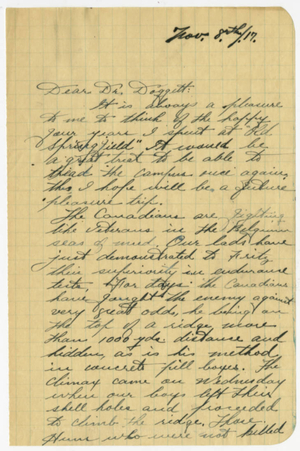 Nov. 8th/17.
Dear Dr. Doggett:
It is always a pleasure
to me to think of the happy
four years I spent at "Old
Springfield". It would be
a great treat to be able to
tread the campus once again,
this I hope will be a future
pleasure trip.
The Canadians are fighting
like veterans in the Belgium
seas of mud. Our lads have
just demonstrated to Fritz,
their superiority in endurance
tests. For days the Canadians
have fought the enemy against
very great odds, he being on
the top of a ridge more
than 1000 yds. distance and
hidden, as is his method
in concrete pill boxes. The
climax came on Wednesday
when our boys left their
shell holes and proceeded
to climb the ridge. Those
Huns who were not killed